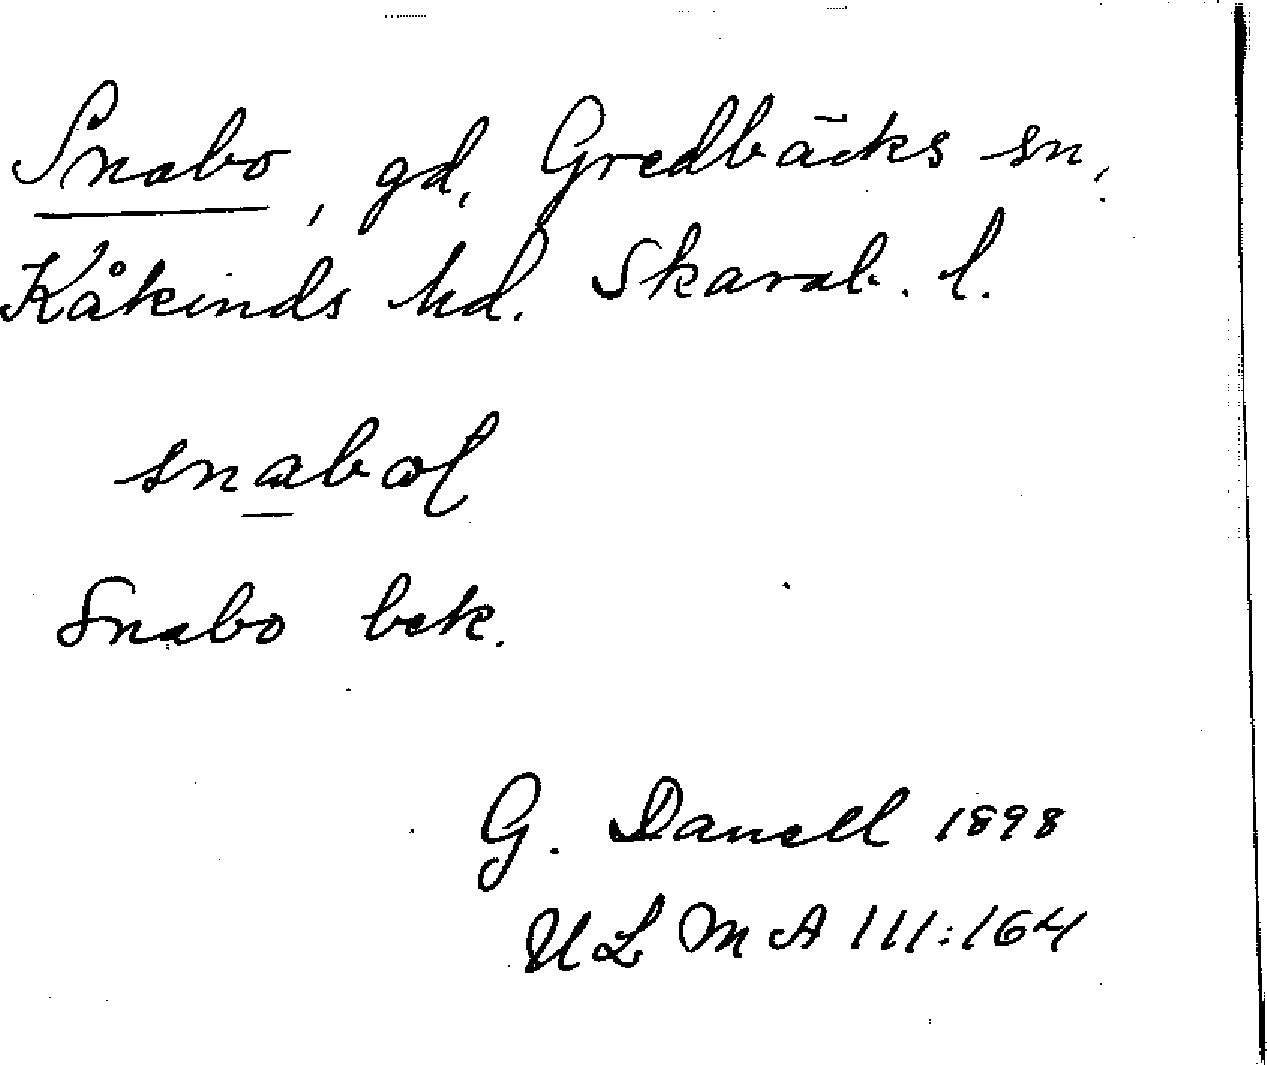 Snabo, gd, Gredbäcks sn,
Kåkinds hd. Skarab. l.
snabol
Snabo bek.
G. Danell 1898
ULMA 111:164